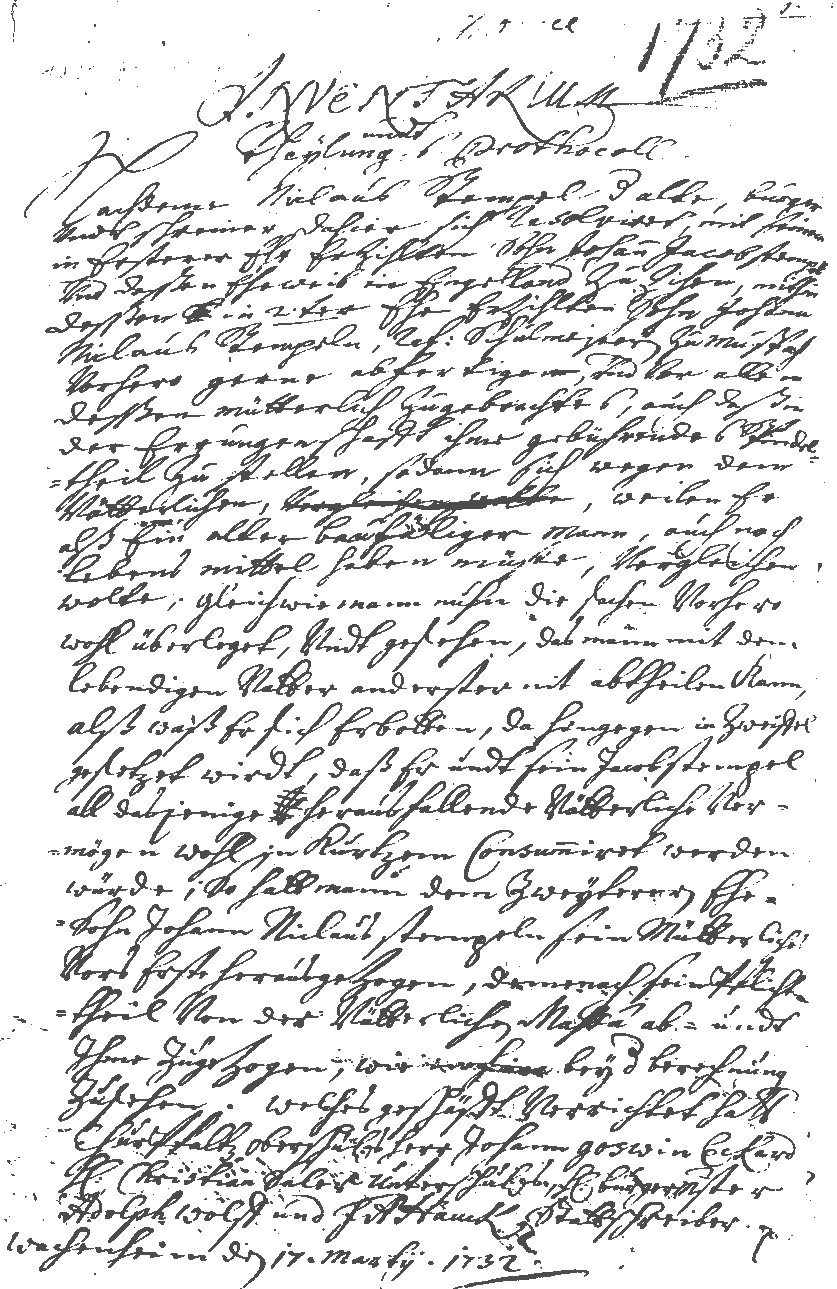 1732
INVENTARIUM
undt
Theylungs Prothocoll
Nachdeme Niclaus Stempel d alte, burger
Undt schreiner dahier sich resolviret, mit seinem
in Ersterer Ehe Erziehlten Sohn Johann Jacob stempel
Und dessen Eheweib in Engelland zu ziehen,
dessen in 2.ter Ehe Erziehlten Sohn Johann
Niclaus Stempeln, Ref: Schulmeistern zu Mußbach
Vorhero gerne abfertigen, und Vor allem
dessen mütterlich zugebrachtes, auch daß in
der Errungenschafft ihme gebührendes
-theil zu stellen, sodann sich wegen dem
Vätterlichen, Vergleichen wolte, weilen Er
alß Ein alter baufälliger mann, auch noch
lebens mittel haben müßte, Vergleichen
wolte, gleichwie mann nuhn die sachen Vorhero
wohl überleget, Undt gesehen, das mann mit dem
lebendigen Vatter anderster nit abtheilen Kann,
alß waß Er sich Erbotten, da hingegen in Zweiffel
gesetzet wirdt, daß Er undt sein Jacob stempel
all dasjenige herausfallende Vätterliche Ver-
-mögen wohl in Kurtzem Consummiret werden
würde, So hatt mann dem Zweyterer Ehe-
-Sohn Johann Niclaus stempeln sein Mütterliches
Vors Erste herausgezogen, demenach sein Pflicht-
-theil Von der Vätterlichen Massa ab- undt
Ihme zugezogen, wie bey d berechnung
zusehen. welches geschäfft Verrichtet hatt
Churpfaltz oberschultheiß herr Johann goswin Eckard
H. Christian Saler Unterschultheiß, H. burgermeister
Adolph Wolff und Stattschreiber.
Wachenheim den 17. Marty. 1732.